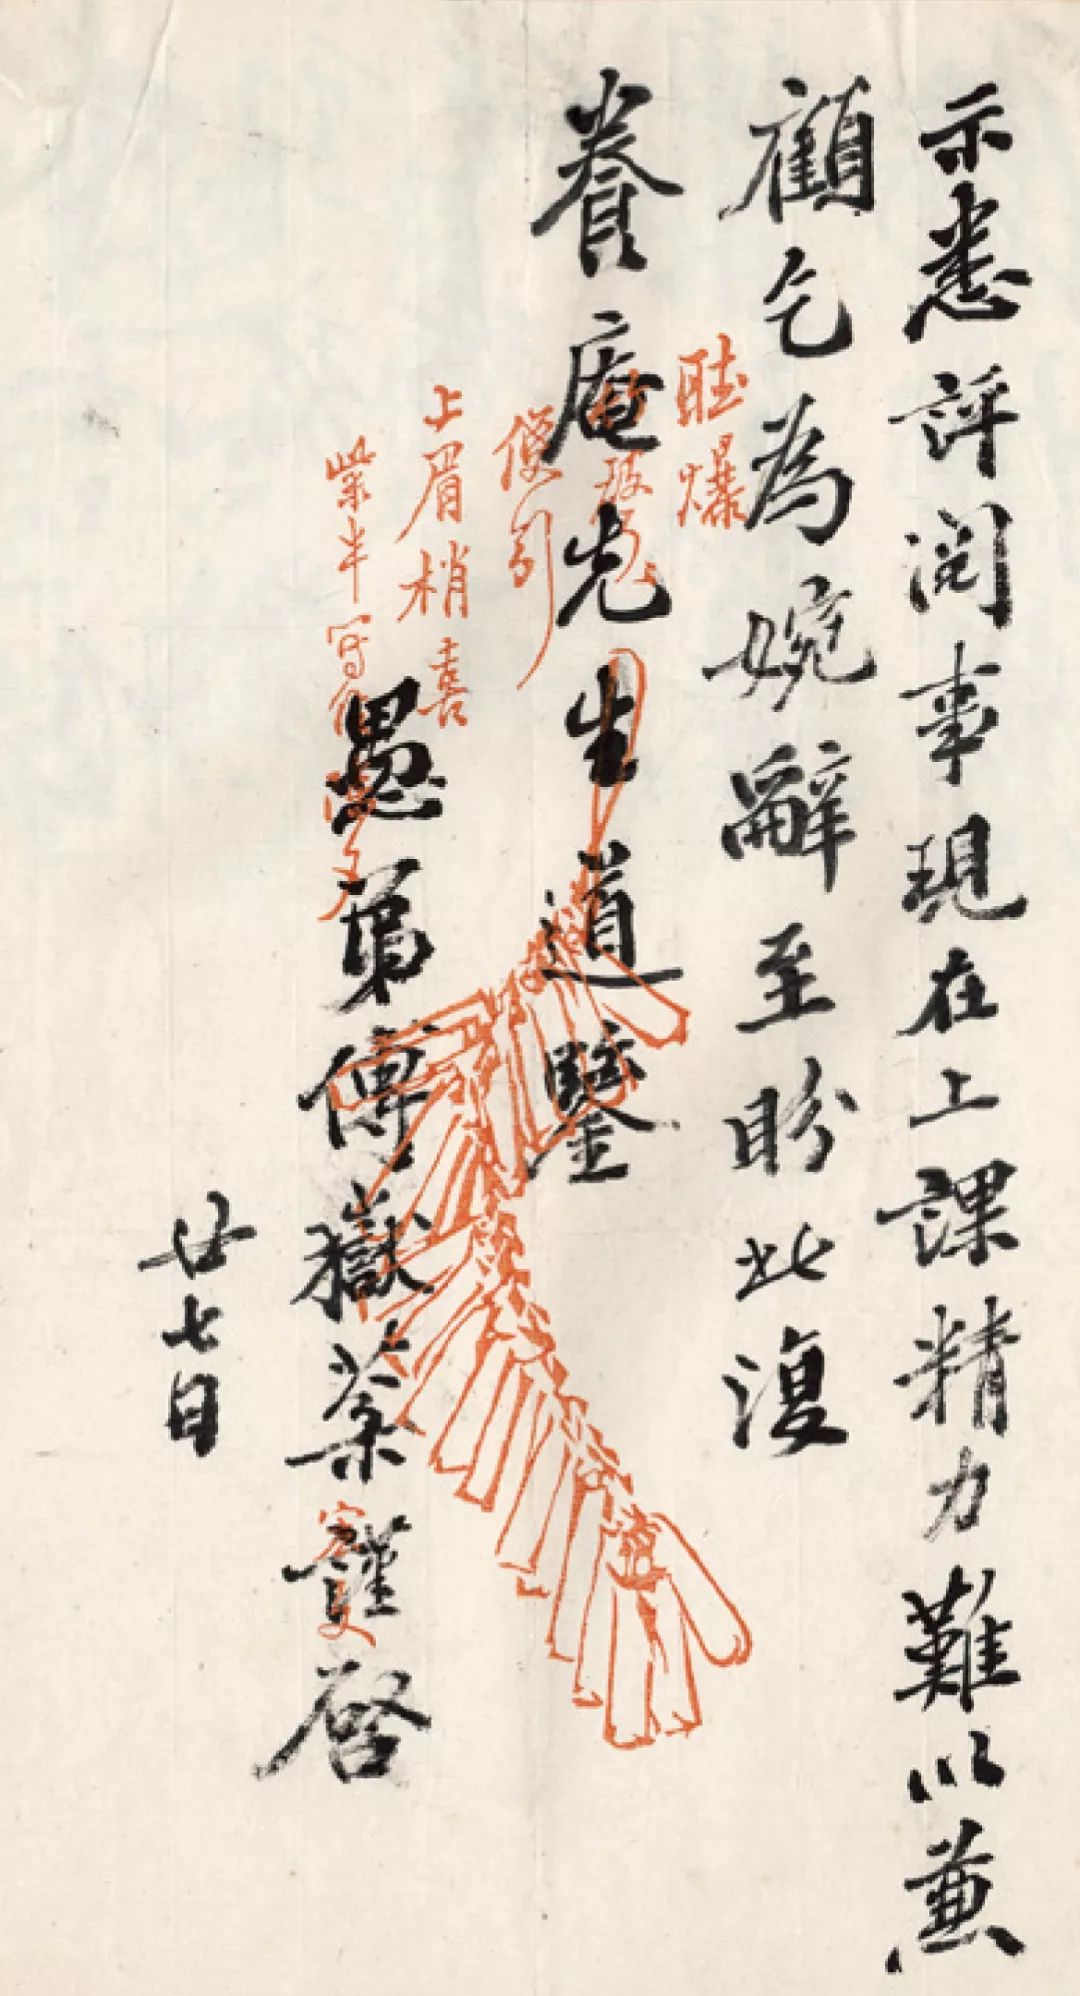 示悉評閱事現在上課精力難以兼
顧乞為婉辭至盼此復
養庵先生道鑒
愚弟傅嶽棻謹啓
廿七日
聽爆
便引
上眉梢喜